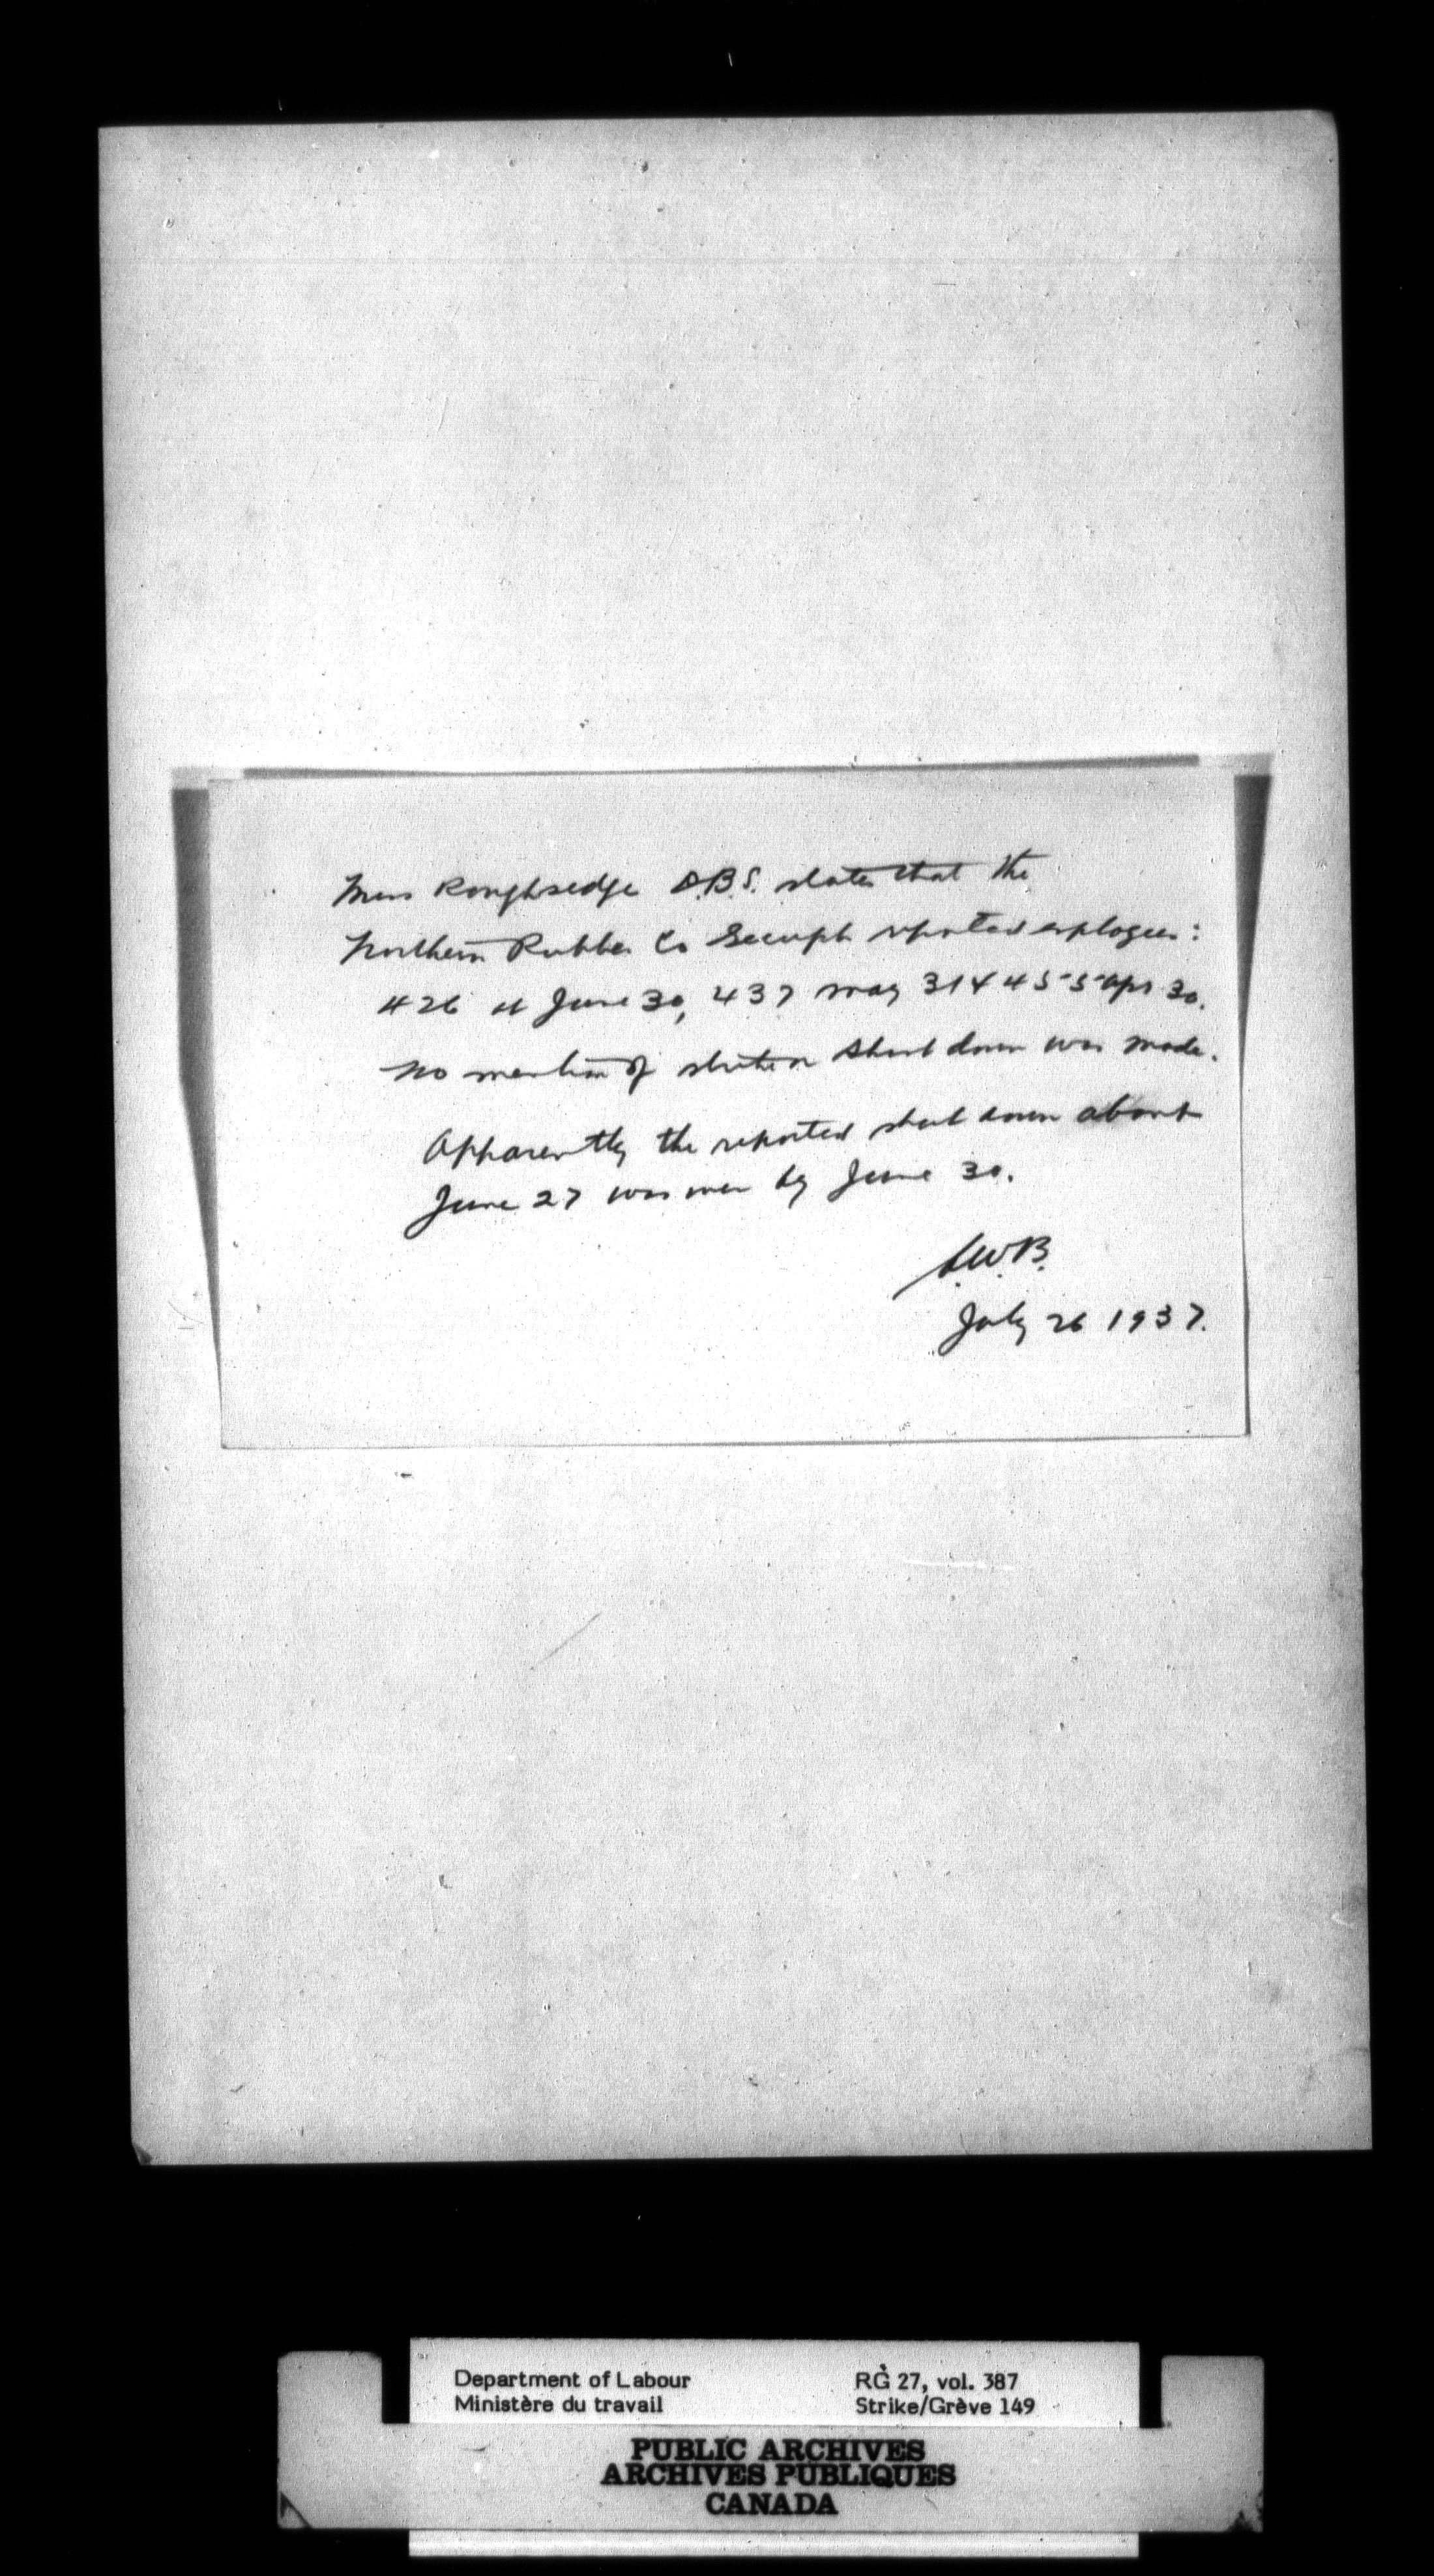 Miss Roughsedge D.B.S. states that the
Northern Rubber Co Guelph reported employees:
426 at June 30, 437 May 31 & 455 Apr 30.
No mention of strike or shut down was made.
Apparently the reported shut down about
June 27 was over by June 30.
W.B.
July 26 1937.
Department of Labour
Ministère du travail
RG 27, vol. 387
Strike/Grève 149
PUBLIC ARCHIVES
ARCHIVES PUBLIQUES
CANADA